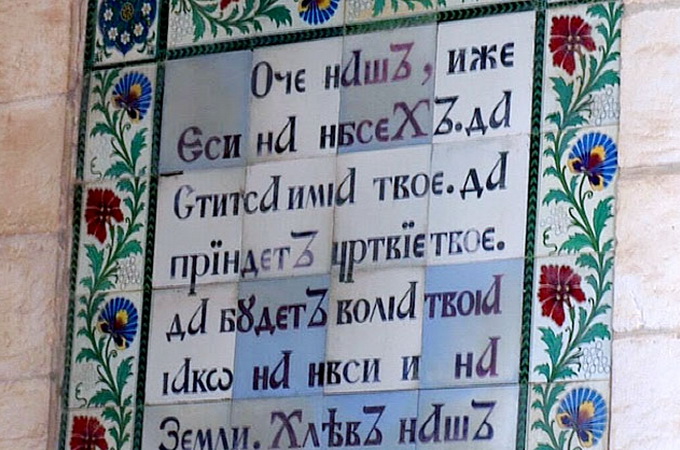 Оче нашЪ, иже
Єси на нбсехЪ.да
Стится имıа твое.да
прїидетЪ цртвїе твое.
да бꙋдетЪ волıа твоıа
ıакѡ на нвси и на
Земли. ХлѣвЪ нашЪ